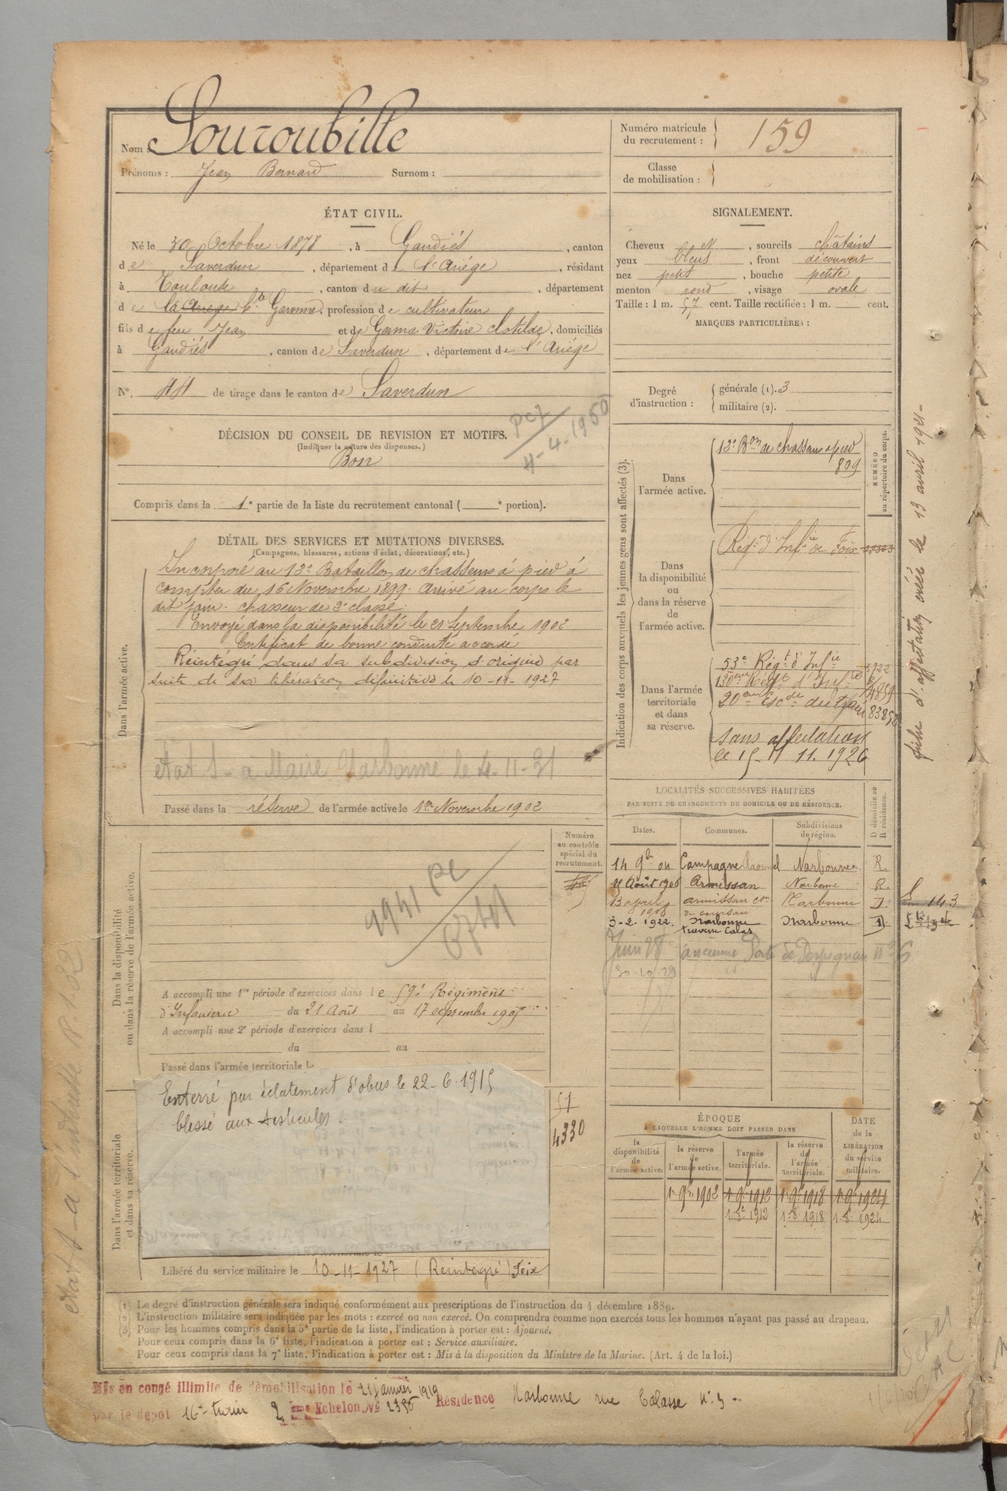 Nom : Souroubille
Prénoms : Jean Bernard Surnom :
Numéro matricule du recrutement : 159
Classe de mobilisation :
ÉTAT CIVIL.
Né le 30 Octobre 1878, à Gaudiés, canton
de Saverdun, département de l'Ariége, résidant
à Toulouse, canton du dit, département
de la Ariege Hte Garonne, profession de cultivateur
fils de feu Jean et de Gama Victoire Clotilde, domiciliés
à Gaudiés, canton de Saverdun, département de l'Ariége
N° 44 de tirage dans le canton de Saverdun
SIGNALEMENT.
Cheveux et, sourcils châtains
yeux bleus, front découvert
nez petit, bouche petite
menton rond, visage ovale
Taille : 1 m. 57 cent. Taille rectifiée : 1 m. cent.
MARQUES PARTICULIÈRES :
Degré d'instruction : générale (1). 3
militaire (2).
DÉCISION DU CONSEIL DE REVISION ET MOTIFS.
(Indiquer la nature des dispenses.)
Bon
4-4-1950
Compris dans la 1e partie de la liste du recrutement cantonal ( e portion).
DÉTAIL DES SERVICES ET MUTATIONS DIVERSES.
(Campagnes, blessures, actions d'éclat, décorations, etc.)
Dans l'armée active.
Incorporé au 12e Bataillon de chasseurs à pied à
compter du 16 Novembre 1899. Arrivé au corps le
dit jour. chasseur de 2e classe.
Envoyé dans la disponibilité le 21 Septembre 1902
Certificat de bonne conduite accordé
Réintégré dans sa subdivision d'origine par
suite de sa libération définitive le 10-11-1927
état S - a Maire Narbonne le 4-11-31
Passé dans la réserve de l'armée active le 1er Novembre 1902
Indication des corps auxquels les jeunes gens sont affectés (3).
NUMÉRO au répertoire du corps.
Dans l'armée active.
12e Bon de chasseurs à pied
809
Dans la disponibilité ou dans la réserve de l'armée active.
Régt d'Infie de Foix
Dans l'armée territoriale et dans sa réserve.
53e Régt d'Infie
20eme Esc de du train 83858
sans affectation
le 15-11 11. 1926
fiche d'affectation créée le 13 avril 1921-
LOCALITÉS SUCCESSIVES HABITÉES
PAR SUITE DE CHANGEMENTS DE DOMICILE OU DE RÉSIDENCE.
D domicile ou R résidence.
Dates. Communes. Subdivisions de région.
Narbonne R.
Août 1906 Armissan Narbonne R.
13 april 1908 armissan con de coursan Narbonne D.
3-2-1922 Narbonne Narbonne D
Juin 28 ancienne Porte de Perpignan n° 6
30-10-29
143
Dans la disponibilité ou dans la réserve de l'armée active.
Numéro au contrôle spécial du recrutement.
A accompli une 1re période d'exercices dans le 59e Régiment
d'Infanterie du 21 Août au 17 septembre 1905
A accompli une 2e période d'exercices dans l
du au
Passé dans l'armée territoriale le
Enterré par éclatement d'obus le 22-6-1915
blessé aux testicules.
51
4330
Dans l'armée territoriale et dans sa réserve.
Libéré du service militaire le 10-11-1927 (Réintégré) Foix
ÉPOQUE
A LAQUELLE L'HOMME DOIT PASSER DANS
DATE de la LIBÉRATION du service militaire.
la disponibilité de l'armée active. la réserve de l'armée active. l'armée territoriale. la réserve de l'armée territoriale.
1 9bre 1902 1 9bre 1912 1 9bre 1918 1 9bre 1924
1-8e 1912 1-8e 1918 1-8e 1924
(1) Le degré d'instruction générale sera indiqué conformément aux prescriptions de l'instruction du 4 décembre 1889.
(2) L'instruction militaire sera indiquée par les mots : exercé ou non exercé. On comprendra comme non exercés tous les hommes n'ayant pas passé au drapeau.
(3) Pour les hommes compris dans la 5e partie de la liste, l'indication à porter est : Ajourné.
Pour ceux compris dans la 6e liste, l'indication à porter est : Service auxiliaire.
Pour ceux compris dans la 7e liste, l'indication à porter est : Mis à la disposition du Ministre de la Marine. (Art. 4 de la loi.)
Mis en congé illimité de démobilisation le 21 janvier 1919
par le dépôt 16e train 2 ème Echelon No 2386 Résidence Narbonne rue N° 5